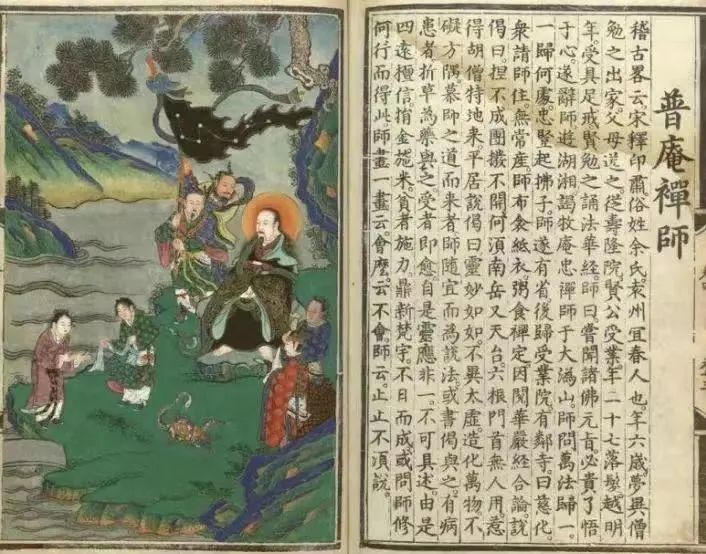 普庵禪師
稽古畧云宋釋印肅俗姓余氏袁州宜春人也年六歲夢異僧
勉之出家父母送之從壽隆院賢公受業年二十七落髮越明
年受具足戒賢勉之誦法華經師曰嘗聞諸佛元旨必貴了悟
于心遂辭師遊湖湘謁牧庵忠禪師于大溈山師問萬法歸一
一歸何處忠豎起拂子師遂有省後歸受業院有鄰寺曰慈化
衆請師住無常產師布衾紙衣粥食禪定因閱華嚴經合論說
偈曰捏不成團撥不開何須南岳又天台六根門首無人用惹
得胡僧特地来平居說偈曰靈妙如如不異太虛造化萬物不
礙方隅慕師之道而来者師隨宜而為說法或書偈與之有病
患者折草為藥與之受者即愈自是靈應非一不可具述由是
四遠檀信捐金施米貧者施力鼎新梵宇不日而成或問師修
何行而得此師畫一畫云會麽云不會師云止止不須說